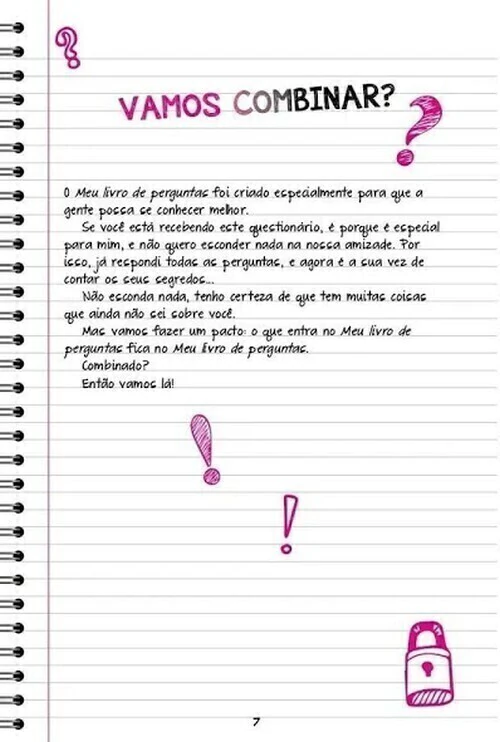 VAMOS COMBINAR?
O Meu livro de perguntas foi criado especialmente para que a
gente possa se conhecer melhor.
Se você está recebendo este questionário, é porque é especial
para mim, e não quero esconder nada na nossa amizade. Por
isso, já respondi todas as perguntas, e agora é a sua vez de
contar os seus segredos...
Não esconda nada, tenho certeza de que tem muitas coisas
que ainda não sei sobre você.
Mas vamos fazer um pacto: o que entra no Meu livro de
perguntas fica no Meu livro de perguntas.
Combinado?
Então vamos lá!
7